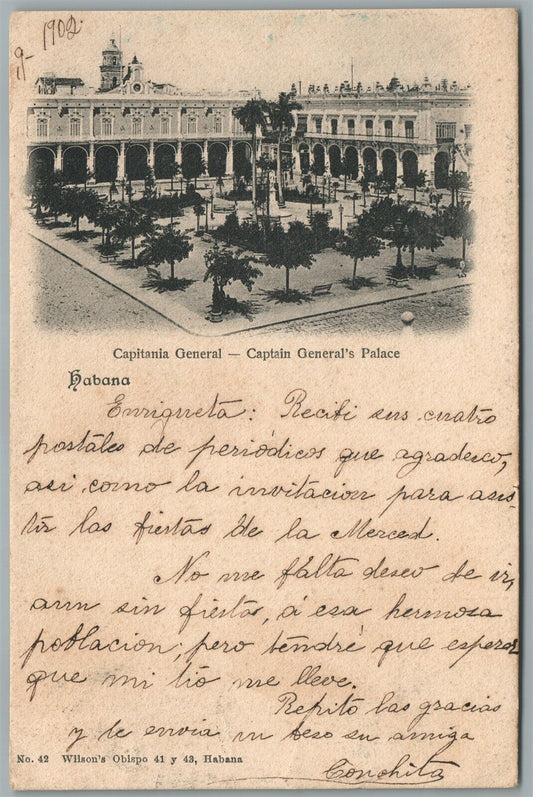 9- 1902.
Capitania General — Captain General's Palace
Habana
Enriqueta: Recibi sus cuatro
postales de periódicos que agradesco,
asi como la invitacion para asis-
tir las fiestas de la Merced.
No me falta deseo de ir,
aun sin fiestas, á esa hermosa
poblacion; pero tendré que esperar
que mi tio me lleve.
Repito las gracias
y le envia un beso su amiga
No. 42 Wilson's Obispo 41 y 43, Habana
Conchita